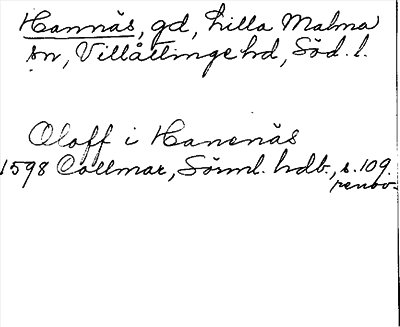 Hannäs, gd, Lilla Malma
sn, Villåttinge hd, Söd. l.
Oloff i Hanenäs
1598 Collmar, Sörml. hdb., s. 109.
renov.